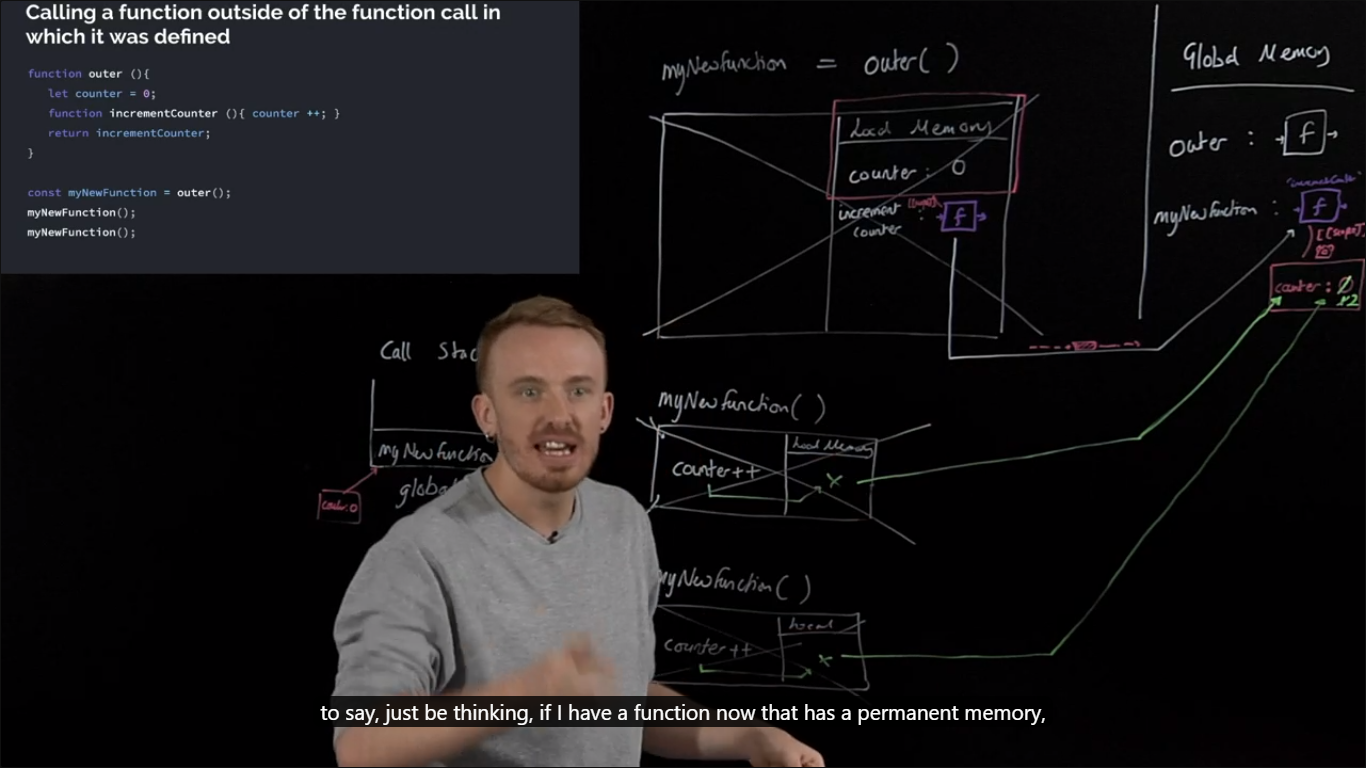 Calling a function outside of the function call in
which it was defined
function outer (){
let counter = 0;
function incrementCounter (){ counter ++; }
return incrementCounter;
}
const myNewFunction = outer();
myNewFunction();
myNewFunction();
myNewfunction = outer( )
Local Memory
counter : 0
increment
counter :
f
Global Memory
outer : f
myNewfunction : f
counter : 0
Call
myNewfunction
global
counter: 0
myNewfunction( )
Local Memory
counter++
myNewfunction( )
Local
counter++
to say, just be thinking, if I have a function now that has a permanent memory,